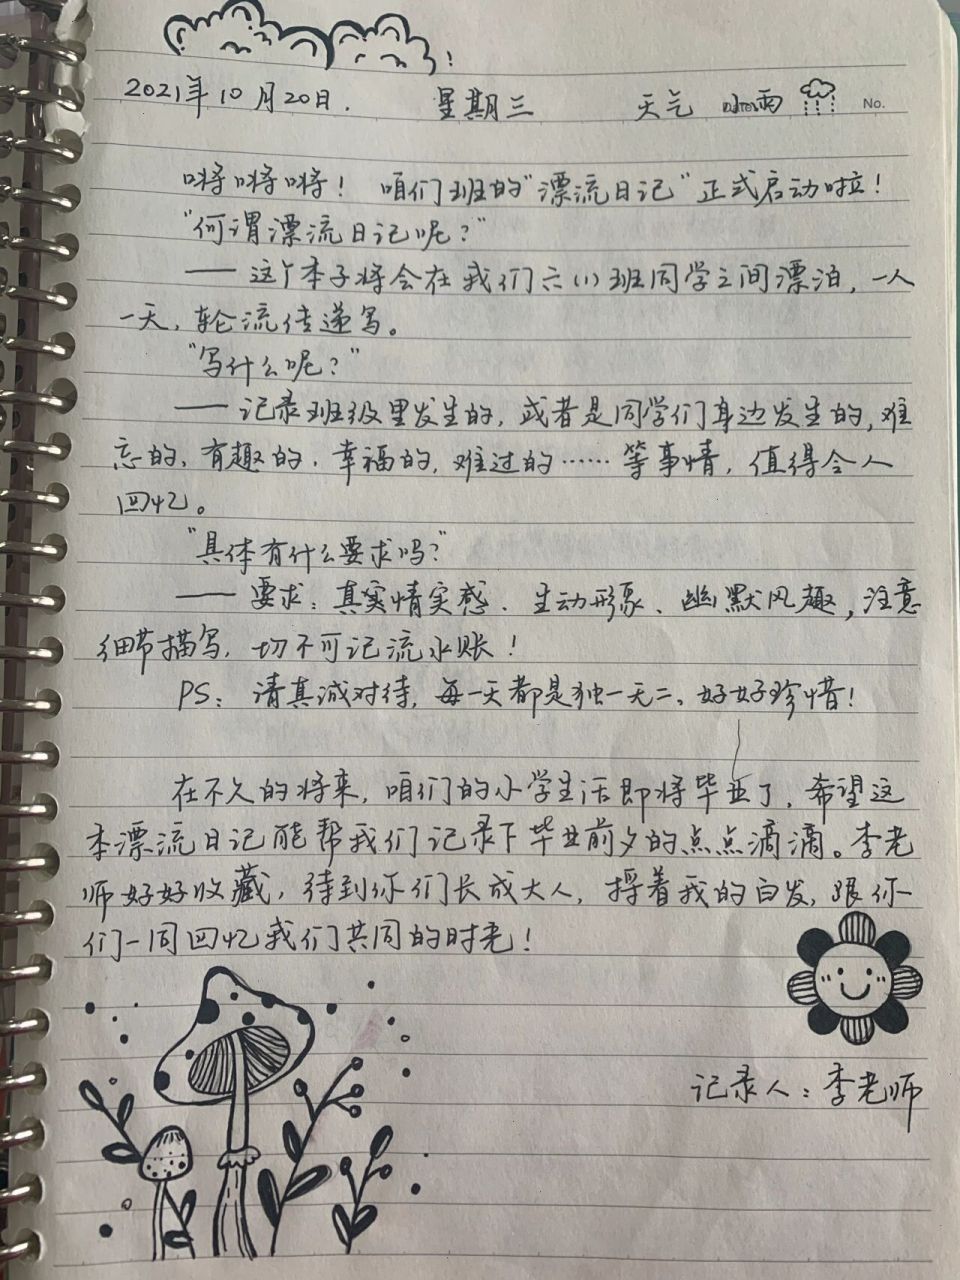 2021年10月20日. 星期三 天气 小雨 No.
嗨嗨嗨! 咱们班的"漂流日记"正式启动啦!
"何谓漂流日记呢?"
——这个本子将会在我们六(1)班同学之间漂泊,一人
一天,轮流传递写。
"写什么呢?"
——记录班级里发生的,或者是同学们身边发生的,难
忘的,有趣的,幸福的,难过的……等事情,值得令人
回忆。
"具体有什么要求吗?"
——要求:真实情实感、生动形象、幽默风趣,注意
细节描写,切不可记流水账!
PS:请真诚对待,每一天都是独一无二,好好珍惜!
在不久的将来,咱们的小学生活即将毕业了,希望这
本漂流日记能帮我们记录下毕业前夕的点点滴滴。李老
师好好收藏,待到你们长成大人,捋着我的白发,跟你
们一同回忆我们共同的时光!
记录人:李老师